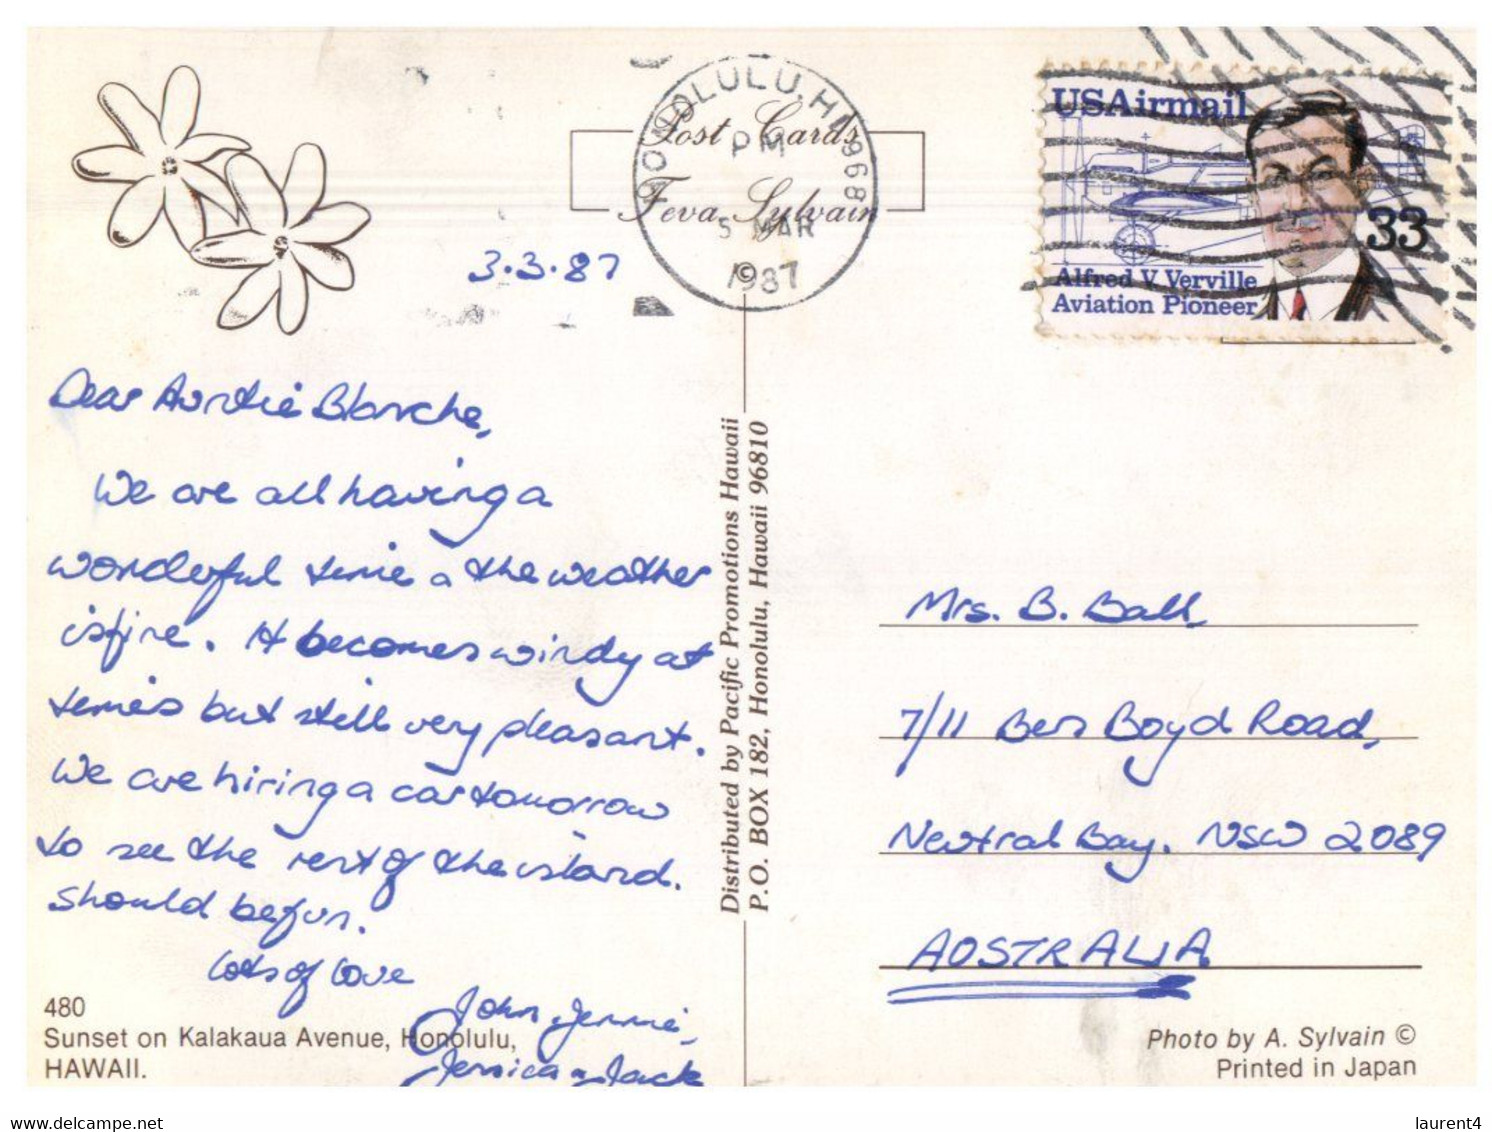 HONOLULU, HI 968
PM
5 MAR
1987
Post Cards
Feva Sylvain
©
USAirmail
33
Alfred V. Verville
Aviation Pioneer
3.3.87
Dear Auntie Blanche,
We are all having a
wonderful time & the weather
is fine. It becomes windy at
times but still very pleasant.
We are hiring a car tomorrow
to see the rest of the island.
Should be fun.
Lots of love
John, Jennie,
Jessica & Jack
480
Sunset on Kalakaua Avenue, Honolulu,
HAWAII.
Distributed by Pacific Promotions Hawaii
P.O. BOX 182, Honolulu, Hawaii 96810
Mrs. B. Ball,
7/11 Ben Boyd Road,
Neutral Bay. NSW 2089
AUSTRALIA
Photo by A. Sylvain ©
Printed in Japan
www.delcampe.net
laurent4